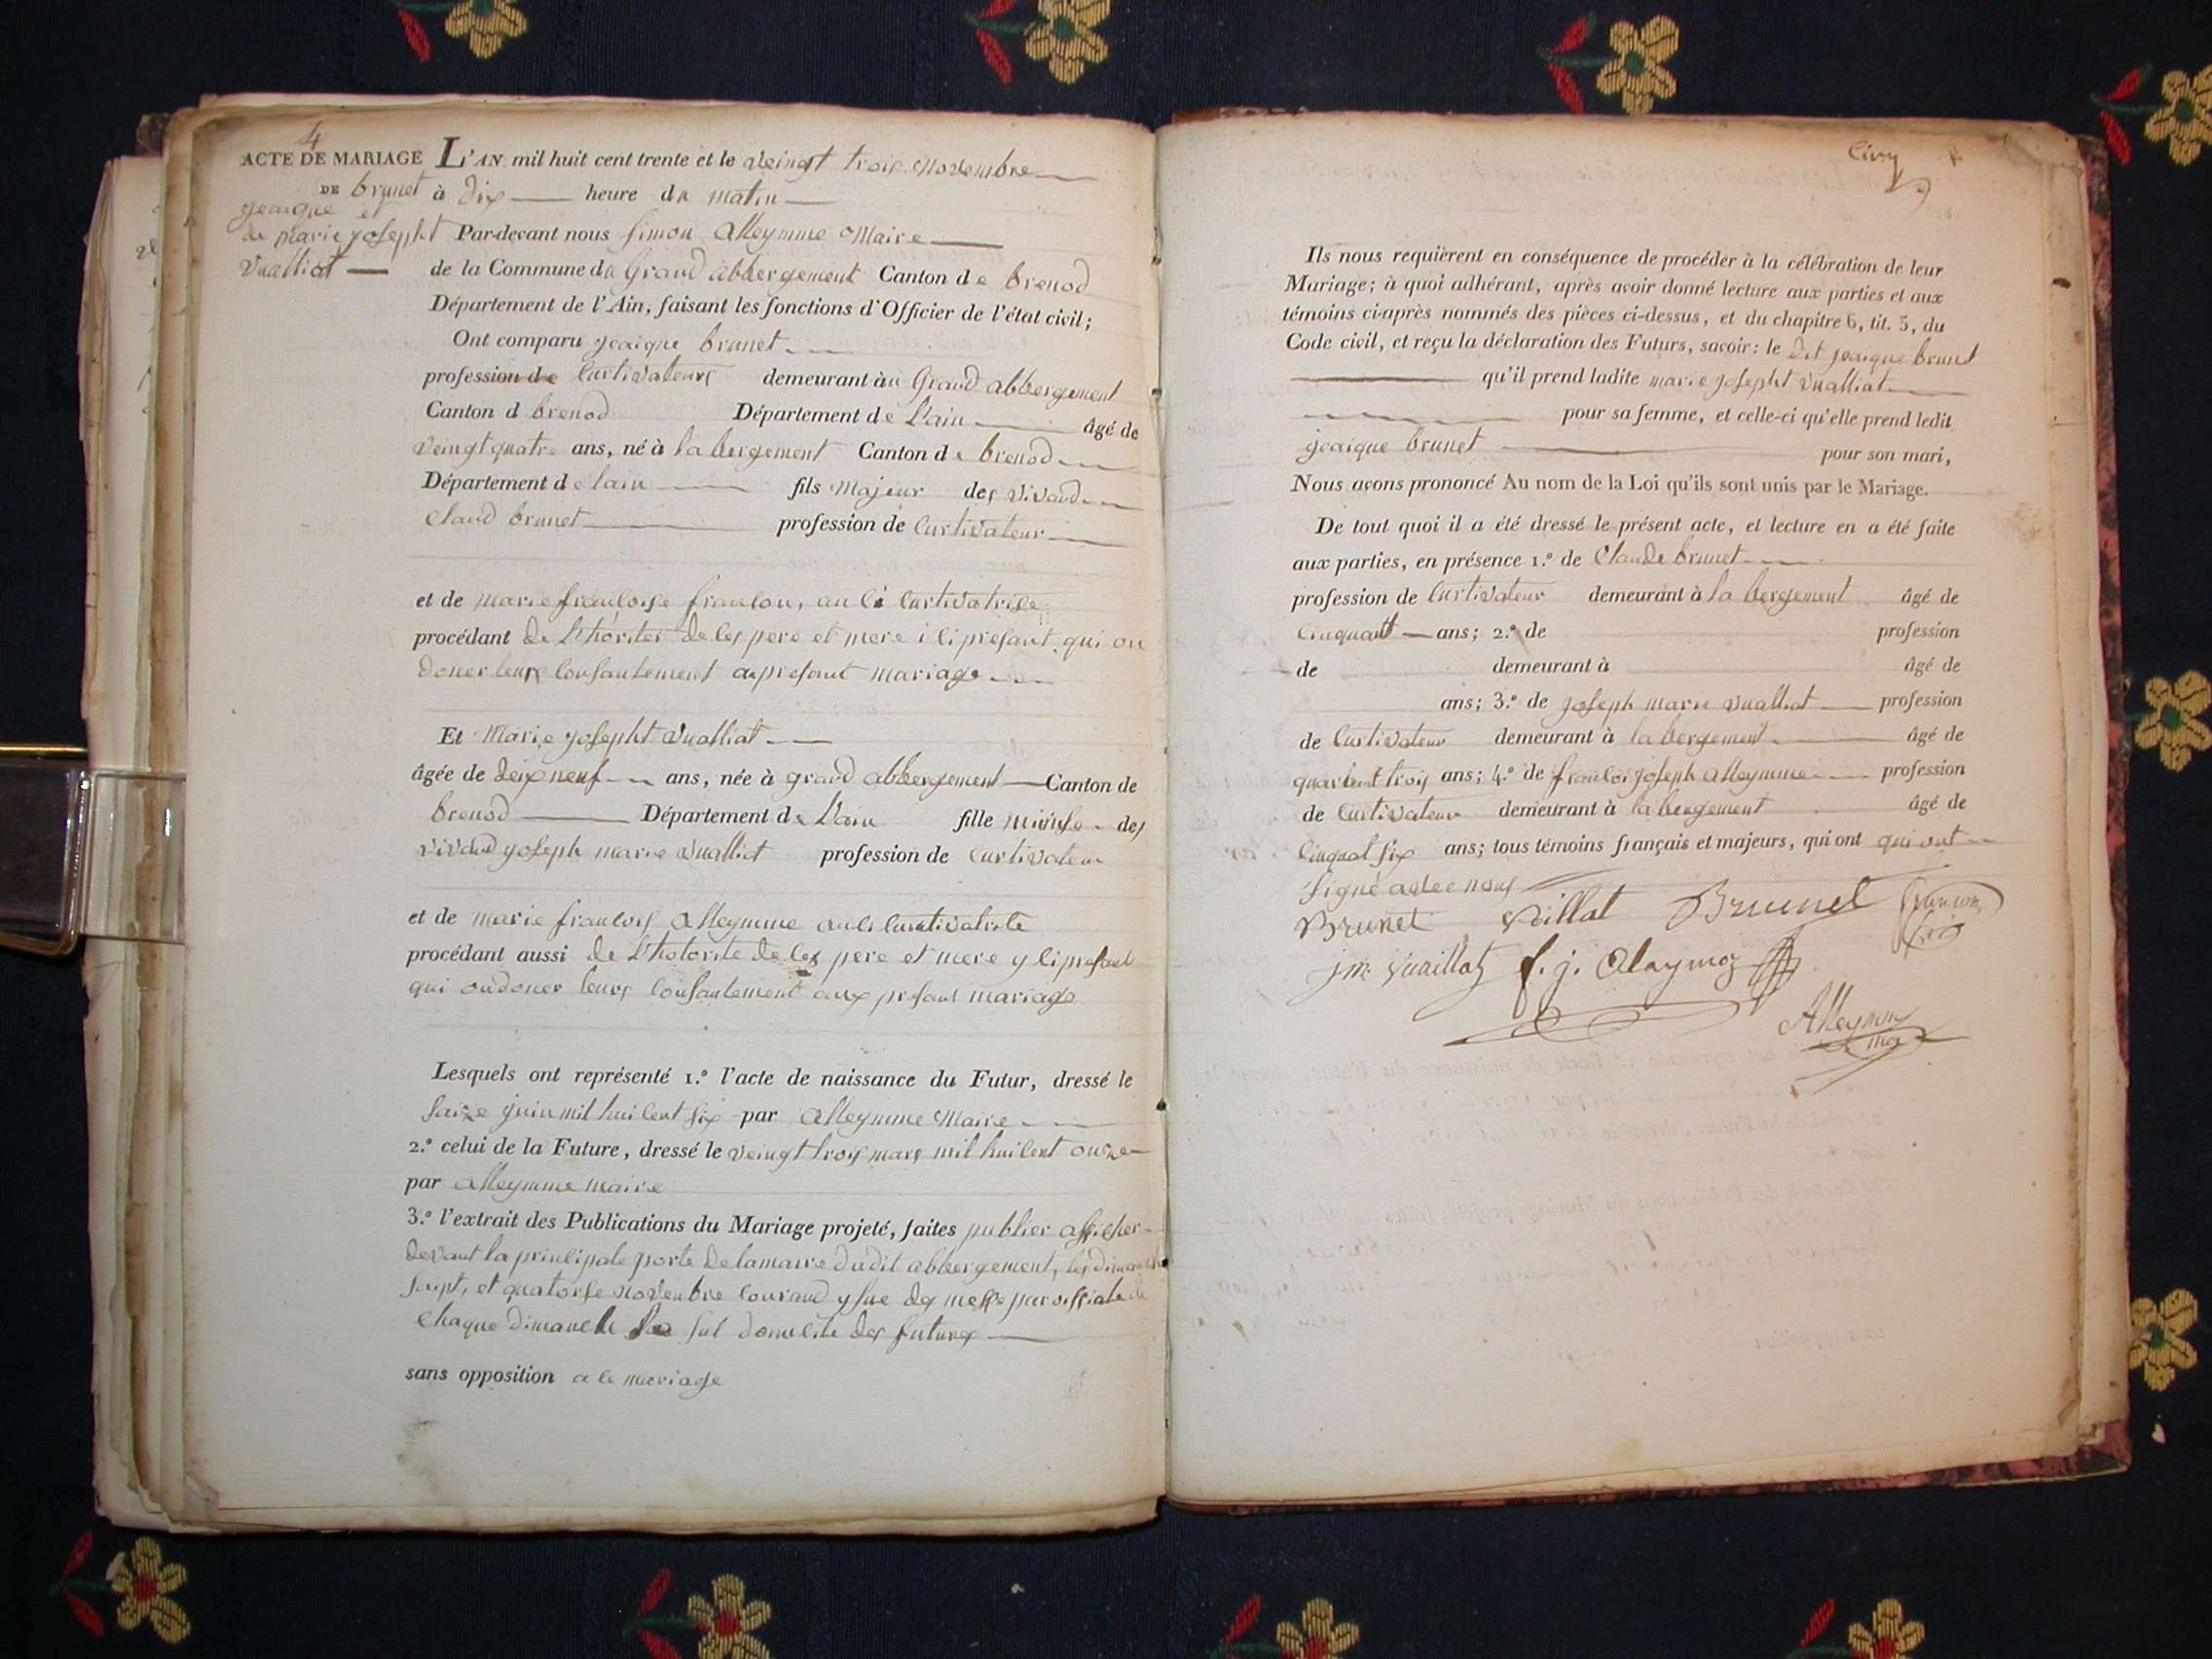 4
ACTE DE MARIAGE
DE brunet
jeaique et
de marie josepht
vualliat
L'AN mil huit cent trente et le veingt trois Novembre
à dix heure du matin
Par-devant nous Simon alleymme Maire
de la Commune du Grand abbergement Canton de brenod
Département de l'Ain, faisant les fonctions d'Officier de l'état civil;
Ont comparu jeaique brunet
profession de Curtivateurs demeurant au Grand abbergement
Canton d brenod Département de L'ain âgé de
veingt quatre ans, né à labergement Canton de brenod
Département de lain fils Majeur des vivand
Claud brunet profession de Curtivateur
et de marie francoise francon, auci Curtivatrice
procédant de L'hotoriter de ces pere et mere i ci presant qui on
doner leurs consantement au presant mariage
Et Marie josepht vualliat
âgée de deix neuf ans, née à grand abbergement Canton de
brenod Département de L'ain fille mineure des
vivand joseph marie vualliat profession de Curtivateur
et de marie francois alleymme auci Curtivatrice
procédant aussi de L'hotorite de ces pere et mere y ci presant
qui on doner leurs consantement aux presant mariage
Lesquels ont représenté 1.º l'acte de naissance du Futur, dressé le
saize juin mil huit cent six par alleymme Maire
2.º celui de la Future, dressé le veingt trois mars mil hui cent onze
par alleymme maire
3.º l'extrait des Publications du Mariage projeté, faites publier afficher
devant la principale porte de la maire dudit abbergement, les dimanche
saipt, et quatorse novembre courand ysue des messe paroissiale de
chaque dimanche sul domicile des futures
sans opposition a ce mariage
Cinq
Ils nous requièrent en conséquence de procéder à la célébration de leur
Mariage; à quoi adhérant, après avoir donné lecture aux parties et aux
témoins ci-après nommés des pièces ci-dessus, et du chapitre 6, tit. 5, du
Code civil, et reçu la déclaration des Futurs, savoir: le dit jeaique brunet
qu'il prend ladite marie josepht vualliat
pour sa femme, et celle-ci qu'elle prend ledit
jeaique brunet pour son mari,
Nous avons prononcé Au nom de la Loi qu'ils sont unis par le Mariage.
De tout quoi il a été dressé le présent acte, et lecture en a été faite
aux parties, en présence 1.º de Claude brunet
profession de Curtivateur demeurant à la bergement âgé de
Cinquant ans; 2.º de profession
de demeurant à âgé de
ans; 3.º de joseph marie vualliat profession
de Curtivateur demeurant à labergement âgé de
quarant trois ans; 4.º de francois joseph alleymme profession
de Curtivateur demeurant à labergement âgé de
Cinquat six ans; tous témoins français et majeurs, qui ont qui ont
signé avec nous
Brunet Vuillat Brunel francon
jm. Vuaillat f. j. Alaymoz
Alleymme